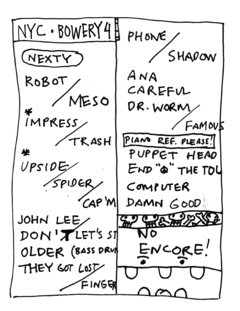 NYC • BOWERY 4
NEXTY
ROBOT /
MESO
* IMPRESS /
TRASH
* UPSIDE /
SPIDER /
CAP'M
JOHN LEE
DON'T LET'S ST
OLDER (BASS DRUM
THEY GOT LOST /
FINGER
PHONE /
SHADOW
ANA
CAREFUL
DR. WORM /
FAMOUS
PIANO REF. PLEASE!
PUPPET HEAD
END "Φ" THE TOU
COMPUTER
DAMN GOOD
NO
ENCORE!